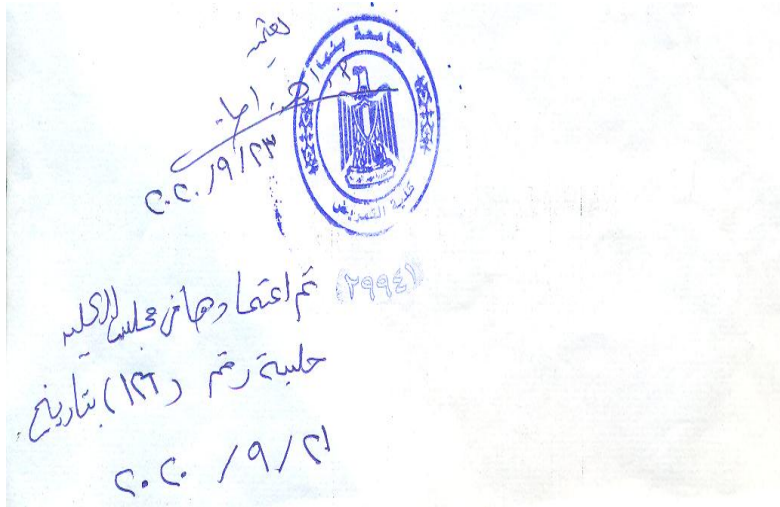 يعتمد
٢٠٢٠/٩/٢٣
جامعة بنها
كلية التمريض
(٢٩٩٤)
تم اعتمادها من مجلس الكلية
جلسة رقم (١٢٦) بتاريخ
٢٠٢٠/٩/٢١